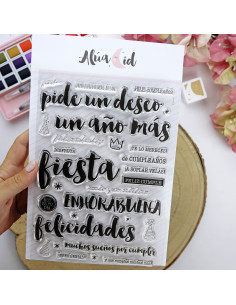 Alúa Cid
pide un deseo
un año más
TE LO MERECES
DE CUMPLEAÑOS
¡A SOPLAR VELAS!
fiesta
FELIZ CUMPLE
ENHORABUENA
felicidades
muchos sueños por cumplir